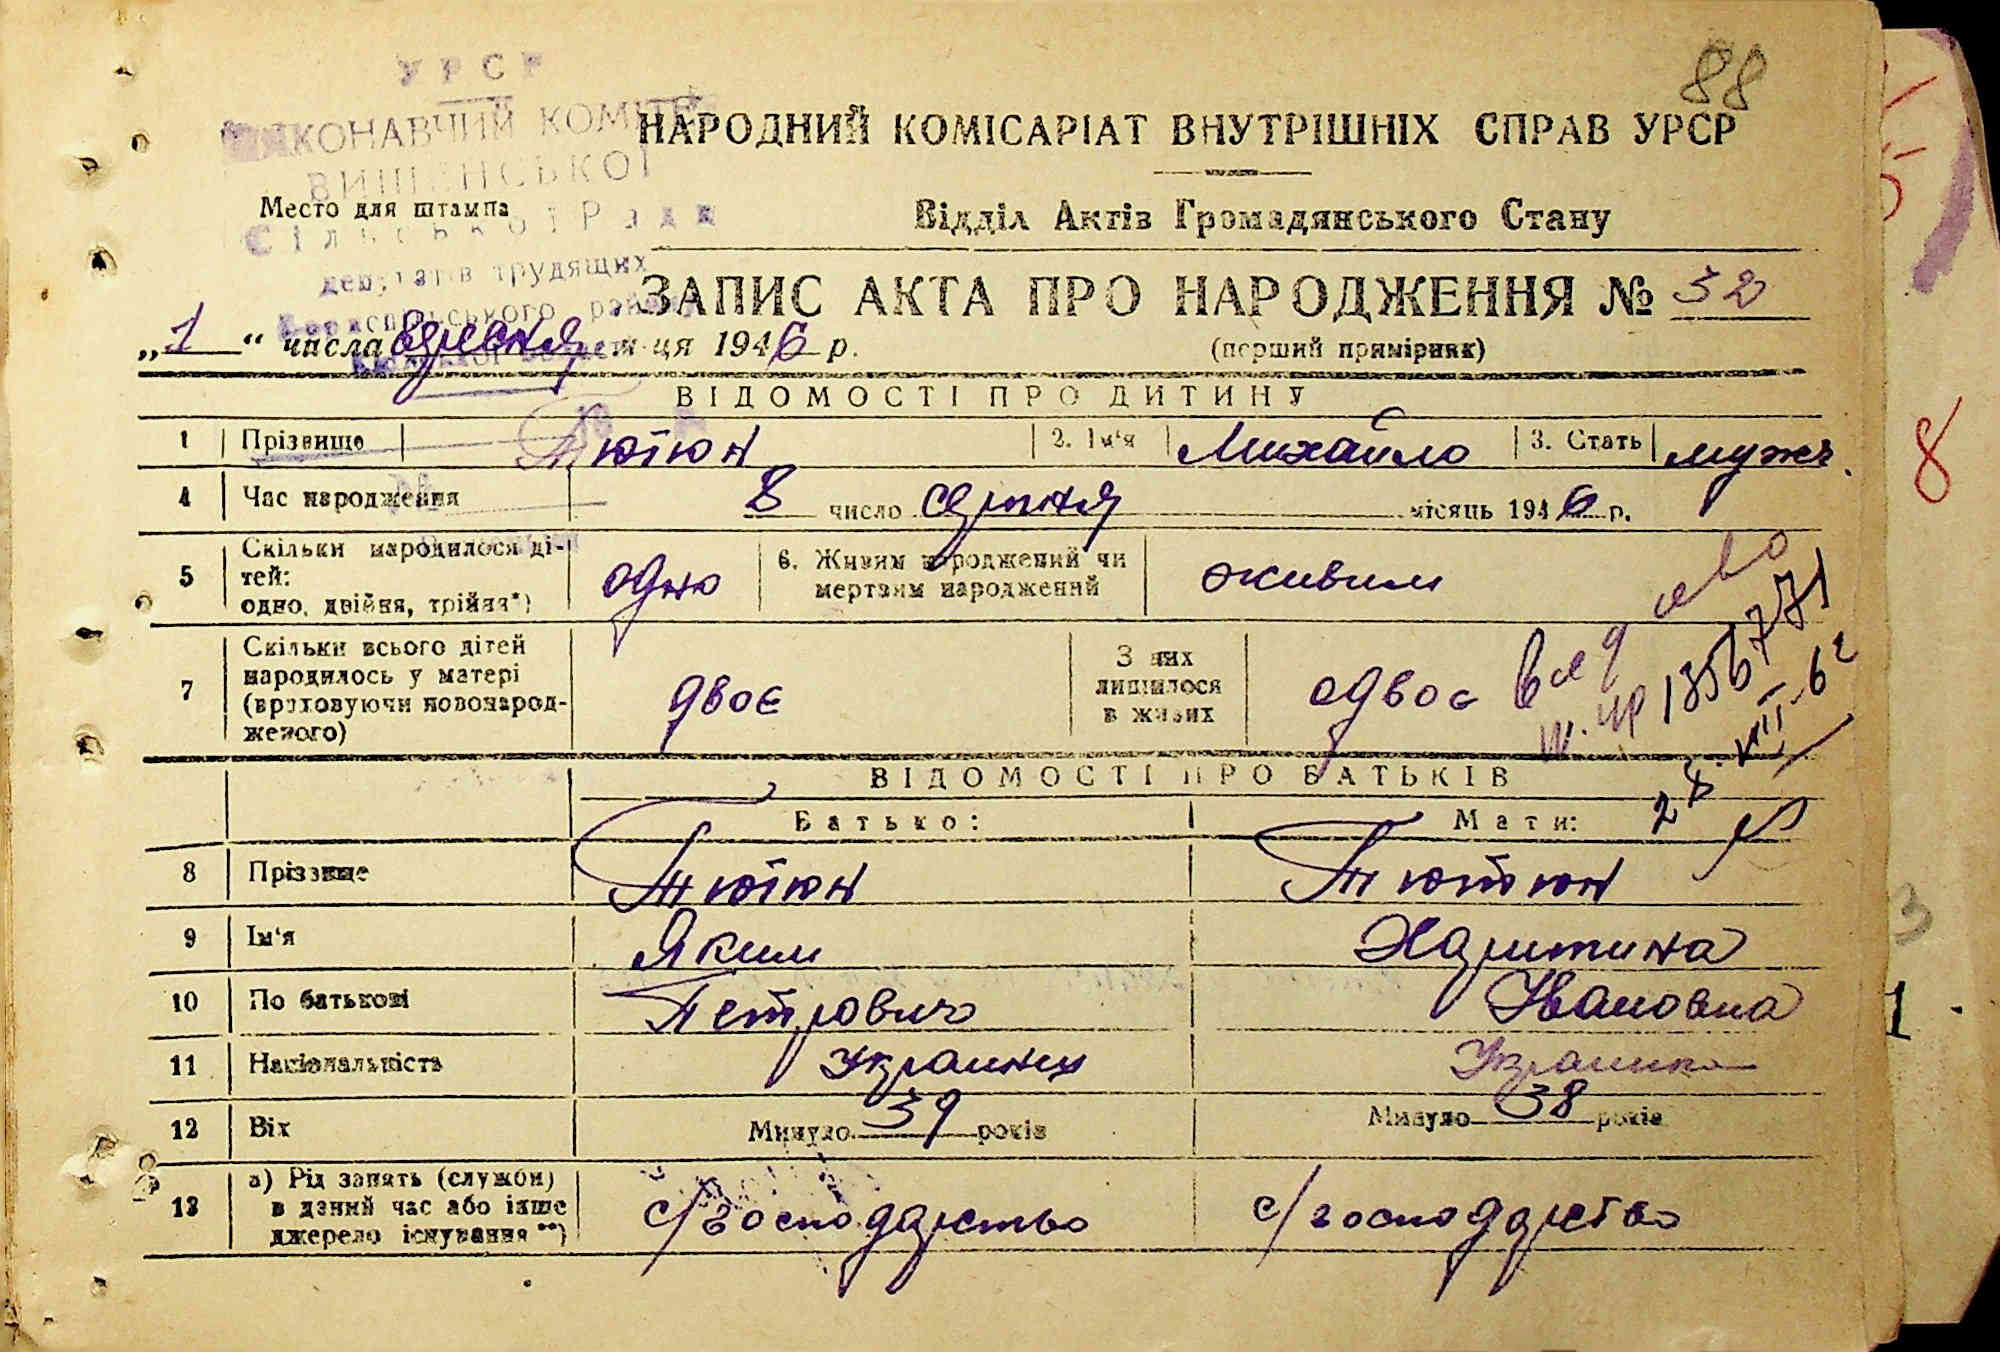 88
УРСР
ВИКОНАВЧИЙ КОМІТЕТ
СільськоїРади
депутатів трудящих
Бориспільського району
НАРОДНИЙ КОМІСАРІАТ ВНУТРІШНІХ СПРАВ УРСР
Место для штампа
Відділ Актів Громадянського Стану
ЗАПИС АКТА ПРО НАРОДЖЕННЯ № 32
„1“ числа вересня м-ця 1946 р.
(перший примірник)
ВІДОМОСТІ ПРО ДИТИНУ
1 Прізвище Тютюн 2. Ім'я Михайло 3. Стать мужч.
4 Час народження 8 число серпня місяць 1946 р.
5 Скільки народилося ді-
тей:
одно, двійня, трійня*) одно
6. Живим народжений чи
мертвим народжений живим
7 Скільки всього дітей
народилось у матері
(враховуючи новонарод-
женого) двоє
З них
лишилося
в живих двоє
1356771
ВІДОМОСТІ ПРО БАТЬКІВ
Батько: Мати:
8 Прізвище Тютюн Тютюн
9 Ім'я Яким Харитина
10 По батькові Петрович Ивановна
11 Національність Украинец Украинка
12 Вік Минуло 39 років Минуло 38 років
13 а) Рід занять (служби)
в даний час або інше
джерело існування**) с/господарство с/господарство
8
3
1